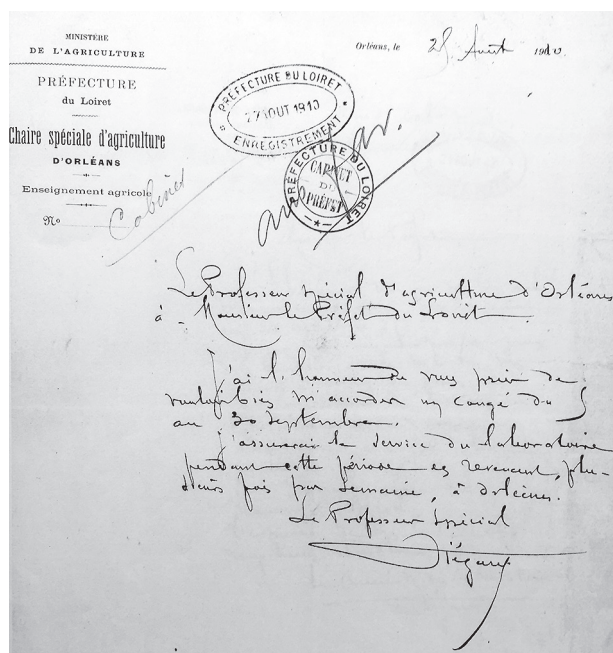 MINISTÈRE
DE L'AGRICULTURE
PRÉFECTURE
du Loiret
Chaire spéciale d'agriculture
D'ORLÉANS
Enseignement agricole
No
Cabinet
Orléans, le 25 Août 1910.
PRÉFECTURE DU LOIRET
27 AOUT 1910
ENREGISTREMENT
PRÉFECTURE DU LOIRET
CABINET
DU
PRÉFET
Le Professeur spécial d'agriculture d'Orléans
à Monsieur le Préfet du Loiret
J'ai l'honneur de vous prier de
vouloir bien m'accorder un congé du 5
au 30 septembre.
J'assurerai le service du laboratoire
pendant cette période en revenant, plu-
sieurs fois par semaine, à Orléans.
Le Professeur Spécial